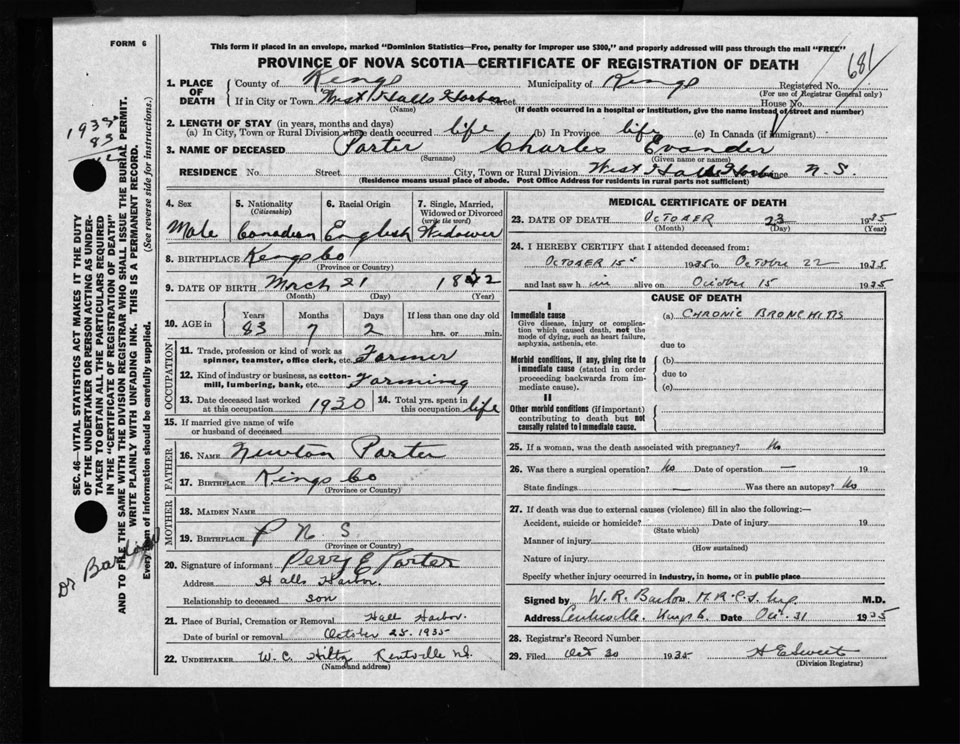 FORM 6
This form if placed in an envelope, marked "Dominion Statistics—Free, penalty for improper use $300," and properly addressed will pass through the mail "FREE"
PROVINCE OF NOVA SCOTIA—CERTIFICATE OF REGISTRATION OF DEATH
681
1. PLACE OF DEATH County of Kings Municipality of Kings Registered No.
(For use of Registrar General only)
If in City or Town West Halls Harbor Street House No.
(Name) (If death occurred in a hospital or institution, give the name instead of street and number)
2. LENGTH OF STAY (in years, months and days)
(a) In City, Town or Rural Division where death occurred life (b) In Province life (c) In Canada (if immigrant)
3. NAME OF DECEASED Porter Charles Evander
(Surname) (Given name or names)
RESIDENCE No. Street City, Town or Rural Division West Halls Harbor Province N.S.
(Residence means usual place of abode. Post Office Address for residents in rural parts not sufficient)
4. Sex 5. Nationality (Citizenship) 6. Racial Origin 7. Single, Married, Widowed or Divorced (write the word)
Male Canadian English Widower
8. BIRTHPLACE Kings Co
(Province or Country)
9. DATE OF BIRTH March 21 1852
(Month) (Day) (Year)
10. AGE in Years Months Days If less than one day old
83 7 2 hrs. or min.
OCCUPATION
11. Trade, profession or kind of work as spinner, teamster, office clerk, etc. Farmer
12. Kind of industry or business, as cotton-mill, lumbering, bank, etc. Farming
13. Date deceased last worked at this occupation 1930 14. Total yrs. spent in this occupation life
15. If married give name of wife or husband of deceased
FATHER
16. NAME Newton Porter
17. BIRTHPLACE Kings Co
(Province or Country)
MOTHER
18. MAIDEN NAME
19. BIRTHPLACE P N. S
(Province or Country)
20. Signature of informant Perry E Porter
Address Halls Harbor.
Relationship to deceased son
21. Place of Burial, Cremation or Removal Hall Harbor.
Date of burial or removal October 25. 1935
22. UNDERTAKER W. C. Hiltz Kentville N.S.
(Name and address)
MEDICAL CERTIFICATE OF DEATH
23. DATE OF DEATH October 23 1935
(Month) (Day) (Year)
24. I HEREBY CERTIFY that I attended deceased from:
October 15 1935 to October 22 1935
and last saw him alive on October 15 1935
CAUSE OF DEATH
I
Immediate cause
Give disease, injury or complication which caused death, not the mode of dying, such as heart failure, asphyxia, asthenia, etc.
(a) Chronic Bronchitis
due to
Morbid conditions, if any, giving rise to immediate cause (stated in order proceeding backwards from immediate cause).
(b)
due to
(c)
II
Other morbid conditions (if important) contributing to death but not causally related to immediate cause.
25. If a woman, was the death associated with pregnancy? No
26. Was there a surgical operation? No Date of operation — 19
State findings — Was there an autopsy? No
27. If death was due to external causes (violence) fill in also the following:—
Accident, suicide or homicide? Date of injury 19
(State which)
Manner of injury
(How sustained)
Nature of injury
Specify whether injury occurred in industry, in home, or in public place
Signed by W. R. Barlow. M.R.C.S. Eng. M.D.
Address Centreville. Kings Co. Date Oct. 31 1935
28. Registrar's Record Number
29. Filed Oct 30 1935 H E Sweet
(Division Registrar)
SEC. 46—VITAL STATISTICS ACT MAKES IT THE DUTY
OF THE UNDERTAKER OR PERSON ACTING AS UNDER-
TAKER TO OBTAIN ALL THE PARTICULARS REQUIRED
IN THE "CERTIFICATE OF REGISTRATION OF DEATH"
AND TO FILE THE SAME WITH THE DIVISION REGISTRAR WHO SHALL ISSUE THE BURIAL PERMIT.
WRITE PLAINLY WITH UNFADING INK. THIS IS A PERMANENT RECORD.
Every item of information should be carefully supplied. (See reverse side for instructions.)
83
Dr Barlow